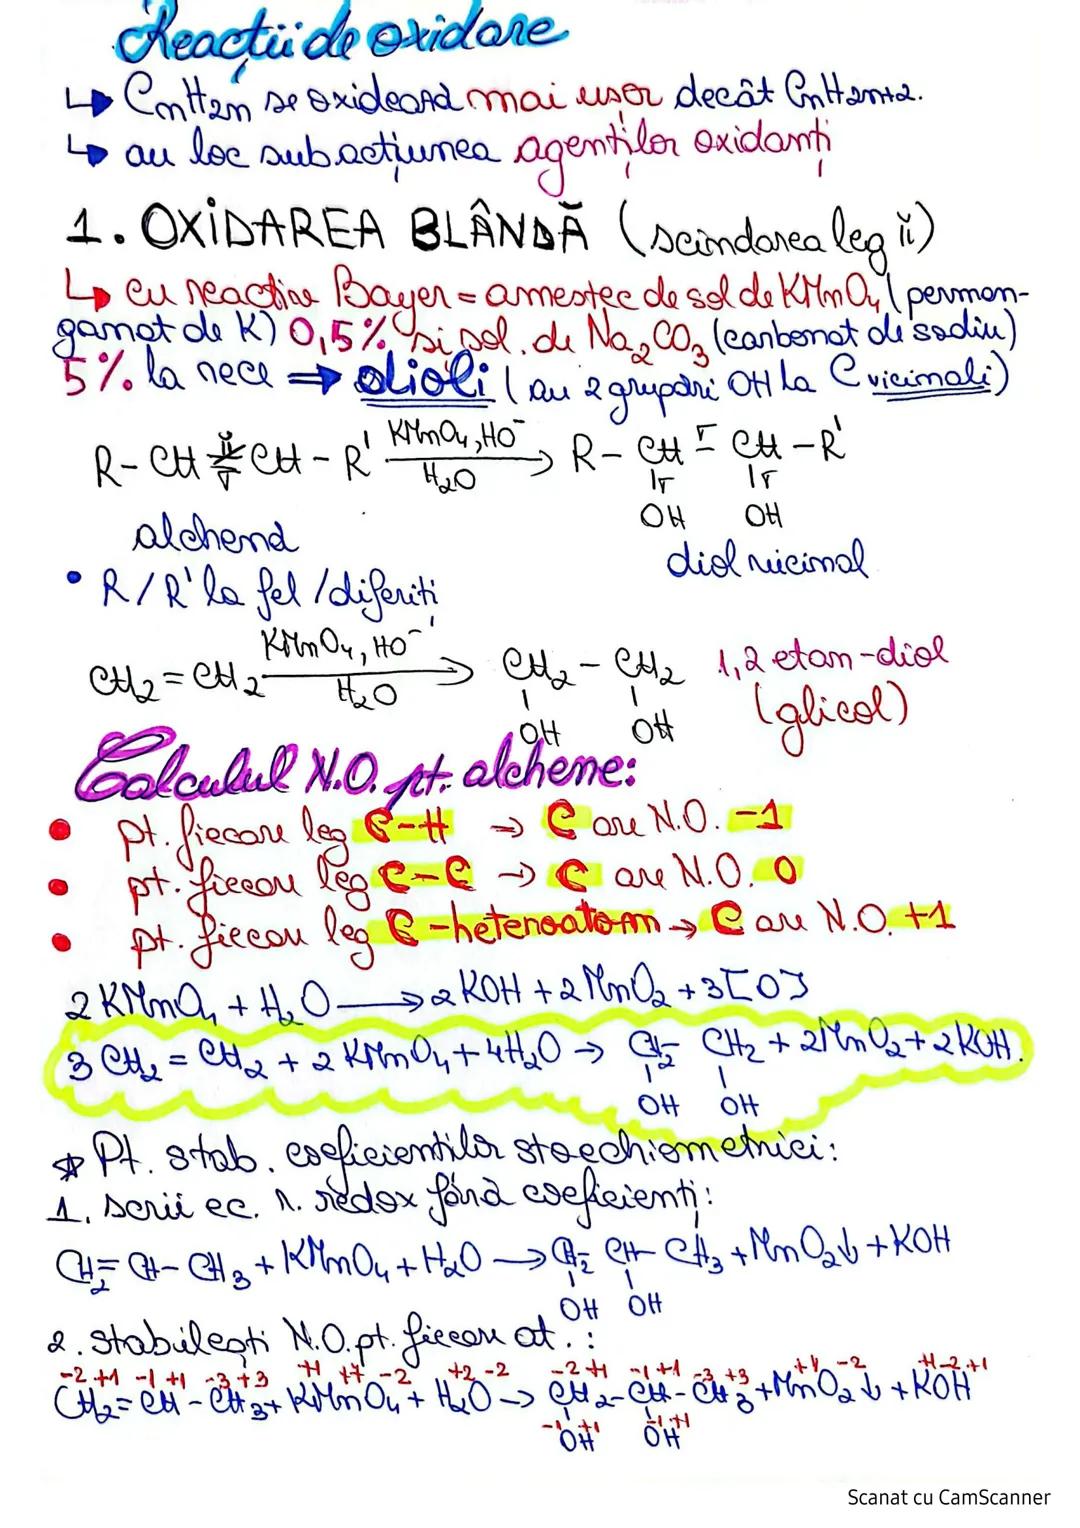 Reacții de oxidare
↳ CnH2n se oxidează mai ușor decât CnH2n+2.
↳ au loc sub acțiunea agenților oxidanți
1. OXIDAREA BLÂNDĂ (scindarea leg π)
↳ cu reactiv Bayer = amestec de sol de KMnO4 (perman-
ganat de K) 0,5% și sol. de Na2CO3 (carbonat de sodiu)
5% la rece ⇒ dioli (au 2 grupări OH la C vicinali)
R - CH = CH - R' KMnO4, HO⁻ → H2O R - CH - CH - R'
π σ σ σ σ
OH OH
alchenă
diol vicinal
• R/R' la fel / diferiți
CH2 = CH2 KMnO4, HO⁻ → H2O CH2 - CH2 1,2 etan-diol
OH OH (glicol)
Calculul N.O. pt. alchene:
• pt. fiecare leg C-H → C are N.O. -1
• pt. fiecare leg C-C → C are N.O. 0
• pt. fiecare leg C-heteroatom → C are N.O. +1
2 KMnO4 + H2O → 2 KOH + 2 MnO2 + 3[O]
3 CH2 = CH2 + 2 KMnO4 + 4H2O → CH2- CH2 + 2MnO2 + 2KOH.
OH OH
* Pt. stab. coeficienților stoechiometrici:
1. scrii ec. r. redox fără coeficienți:
CH2= CH- CH3 + KMnO4 + H2O → CH2- CH- CH3 + MnO2↓ + KOH
OH OH
2. stabilești N.O. pt. fiecare at. :
-2 +1 -1 +1 -3 +3 +1 +7 -2 +2 -2 -2 +1 -1 +1 -3 +3 +4 -2 +1 -2 +1
CH2 = CH - CH3 + KMnO4 + H2O → CH2 - CH - CH3 + MnO2↓ + KOH
-1 +1 -1 +1
OH OH
Scanat cu CamScanner